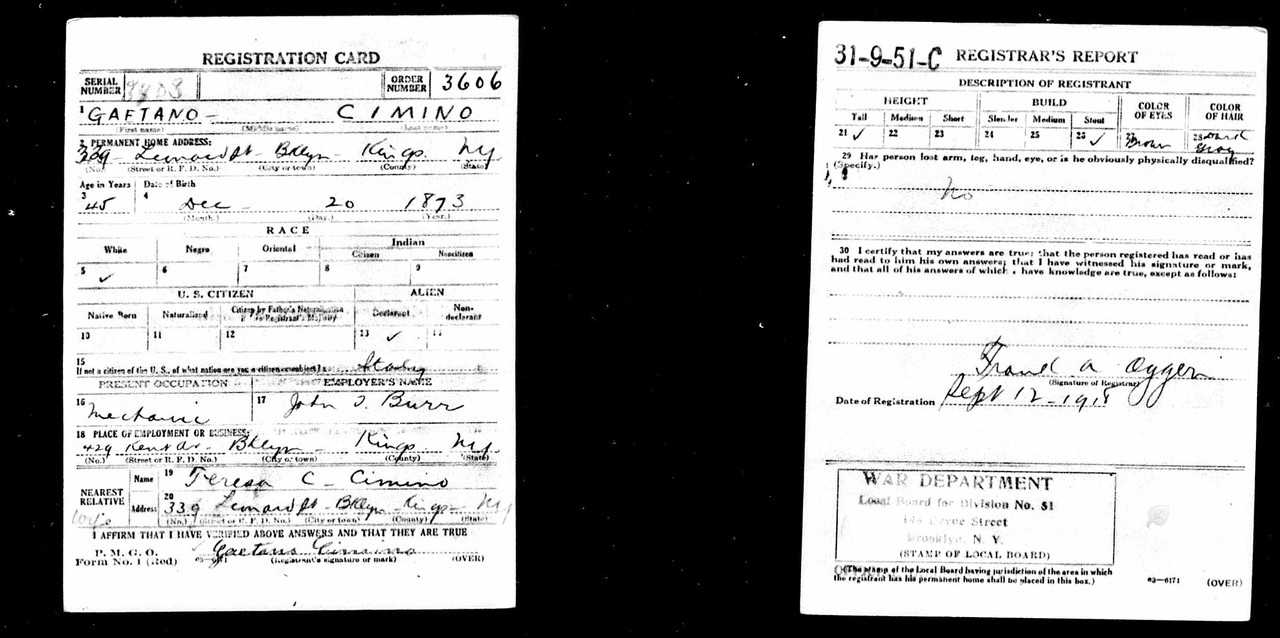 REGISTRATION CARD
SERIAL NUMBER ORDER NUMBER 3606
1 GAETANO - CIMINO
(First name) (Middle name) (Last name)
2 PERMANENT HOME ADDRESS:
339 Leonard St - Bklyn Kings NY
(No.) (Street or R. F. D. No.) (City or town) (County) (State)
Age in Years Date of Birth
3 45 4 Dec 20 1873
(Month.) (Day.) (Year.)
RACE
White Negro Oriental Indian
Citizen Noncitizen
5 ✓ 6 7 8 9
U. S. CITIZEN ALIEN
Native Born Naturalized Citizen by Father's Naturalization Before Registrant's Majority Declarant Non-declarant
10 11 12 13 ✓ 14
15 If not a citizen of the U. S., of what nation are you a citizen or subject? Italy
PRESENT OCCUPATION EMPLOYER'S NAME
16 Mechanic 17 John T. Burr
18 PLACE OF EMPLOYMENT OR BUSINESS:
429 Kent Av - Bklyn Kings NY
(No.) (Street or R. F. D. No.) (City or town) (County) (State)
NEAREST RELATIVE Name 19 Teresa C - Cimino
wife Address 20 339 Leonard St - Bklyn Kings - NY
(No.) (Street or R. F. D. No.) (City or town) (County) (State)
I AFFIRM THAT I HAVE VERIFIED ABOVE ANSWERS AND THAT THEY ARE TRUE
P. M. G. O. Gaetano Cimino
Form No. 1 (Red) (Registrant's signature or mark) (OVER)
31-9-51-C REGISTRAR'S REPORT
DESCRIPTION OF REGISTRANT
HEIGHT BUILD COLOR OF EYES COLOR OF HAIR
Tall Medium Short Slender Medium Stout
21 ✓ 22 23 24 25 26 ✓ 27 Brown 28 Dark Gray
29 Has person lost arm, leg, hand, eye, or is he obviously physically disqualified?
(Specify.)
No
30 I certify that my answers are true; that the person registered has read or has
had read to him his own answers; that I have witnessed his signature or mark,
and that all of his answers of which I have knowledge are true, except as follows:
(Signature of Registrar)
Date of Registration Sept 12 - 1918
WAR DEPARTMENT
Local Board for Division No. 51
Street
Brooklyn, N. Y.
(STAMP OF LOCAL BOARD)
(The stamp of the Local Board having jurisdiction of the area in which
the registrant has his permanent home shall be placed in this box.)
03-6171 (OVER)